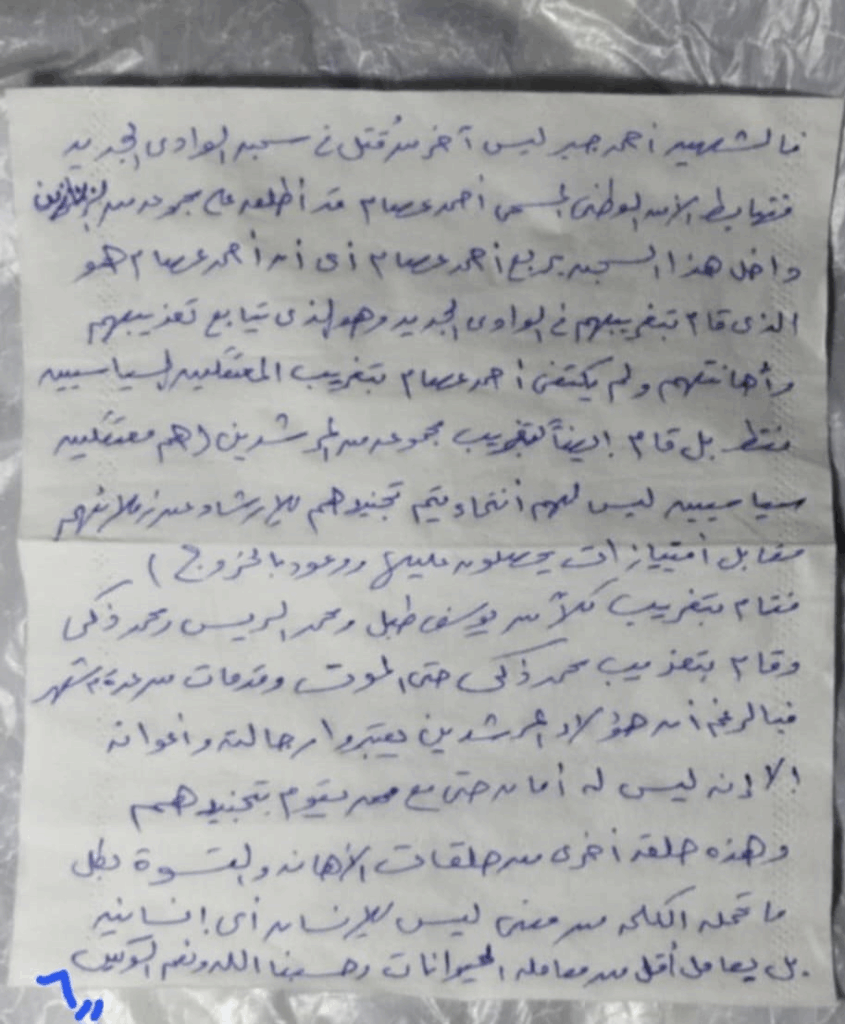 فالشهيد أحمد جبر ليس آخر من قُتل في سجن الوادى الجديد
فضابط الأمن الوطنى المسمى أحمد عصام قد أطلق على مجموعه من
داخل هذا السجن بربع أحمد عصام أى أن أحمد عصام هو
الذى قام بتغريبهم في الوادى الجديد وهو الذى يتابع تعذيبهم
وأهانتهم ولم يكتفى أحمد عصام بتغريب المعتقلين السياسيين
فقط بل قام ايضاً بتغريب مجموعه من المرشدين (هم معتقلين
سياسيين ليس لهم أنتماء يتم تجنيدهم للإرشاد عن زملائهم
مقابل أمتيازات يحصلون عليها ووعود بالخروج)
فقام بتغريب كلاً من يوسف طبل ومحمد الريس ومحمد ذكى
وقام بتعذيب محمد ذكى حتى الموت وقد مات من مدة شهر
فبالرغم أن هؤلاء المرشدين يعتبروا رجالته وأعوانه
إلا إنه ليس له أمان حتى مع من يقوم بتجنيدهم
وهذه حلقه أخرى من حلقات الأهانه والقسوة بكل
ما تحمله الكلمه من معنى ليس للإنسان أى إنسانيه
بل يعامل أقل من معامله الحيوانات وحسبنا الله ونعم الوكيل
٦